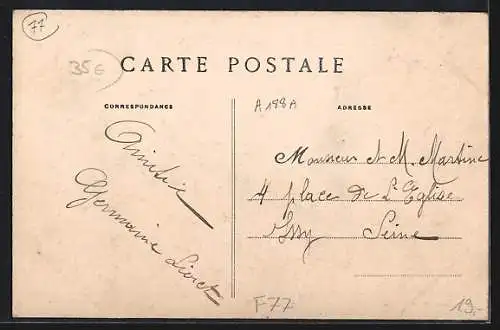 77
35G
CARTE POSTALE
CORRESPONDANCE
A198A
ADRESSE
Amitié
Germaine
Monsieur et M. Martine
4 place de L'Eglise
Issy Seine
F77
19.-